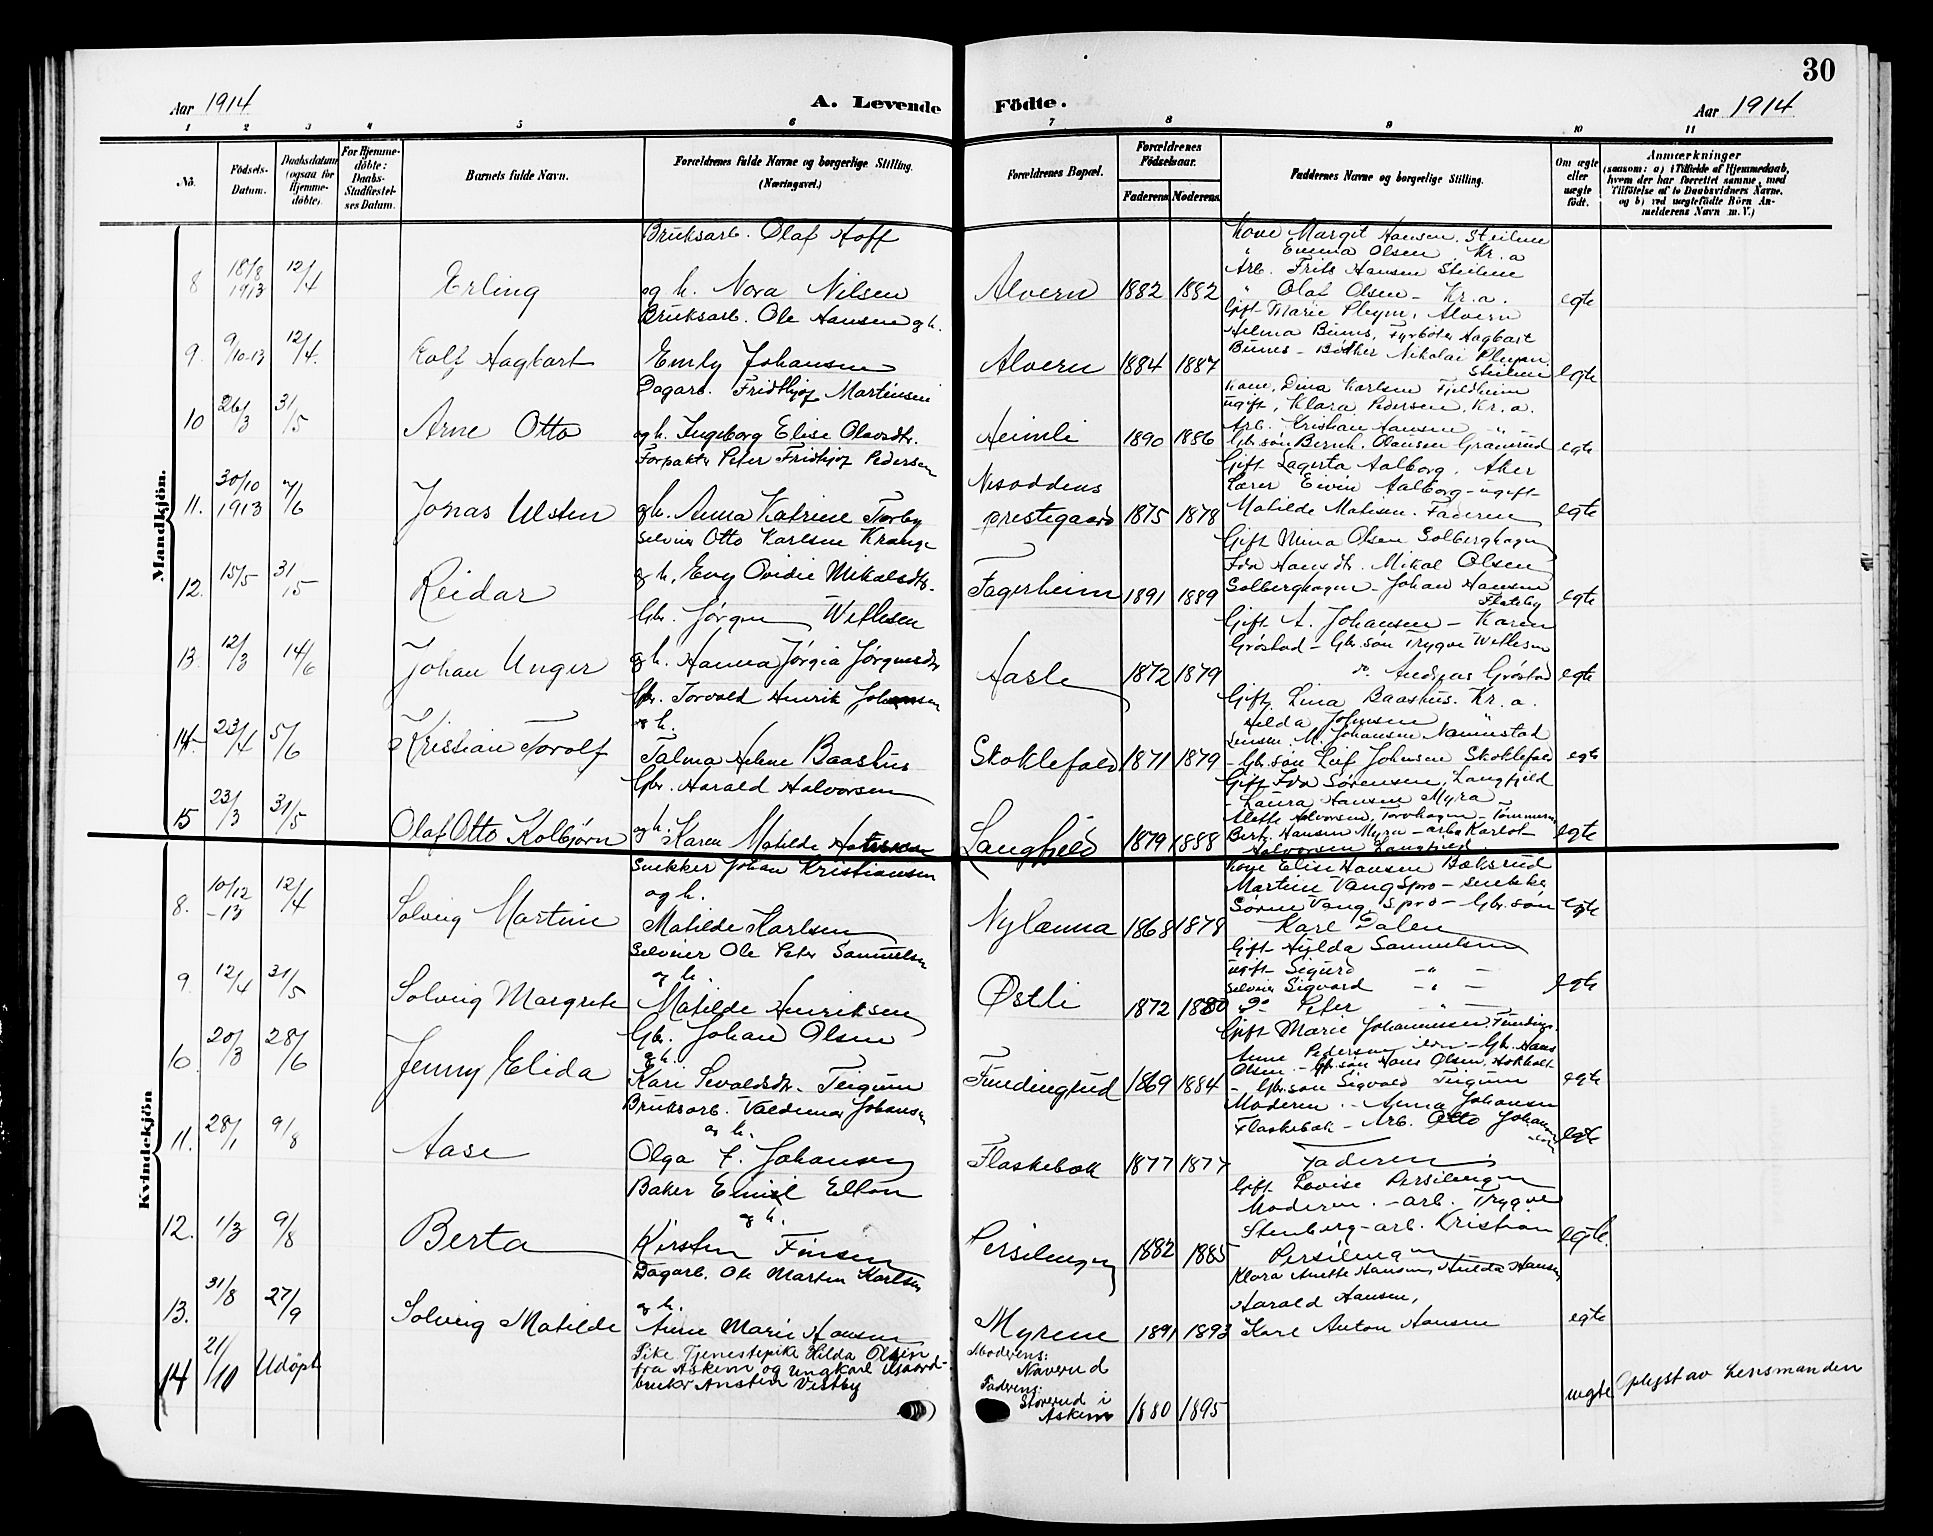 30
Aar 1914
A. Levende Födte.
Aar 1914
1 2 3 4 5 6 7 8 9 10 11
No.
Födsels-Datum.
Daabsdatum (ogsaa for Hjemme-döbte).
For Hjemme-döbte: Daabs-Stadfæstel-ses Datum.
Barnets fulde Navn.
Forældrenes fulde Navne og borgerlige Stilling.
(Næringsvei.)
Forældrenes Bopæl.
Forældrenes Födselsaar.
Faderens Moderens
Faddernes Navne og borgerlige Stilling.
Om ægte eller uægte födt.
Anmærkninger
(saasom: a) i Tilfælde af Hjemmedaab, hvem der har forrettet samme, med Tilföielse af to Daabsvidners Navne, og b) ved uægtefödte Börn An-melderens Navn m. V.)
Mandkjön.
8 18/8 1913 12/4 Erling
Bruksarb. Olaf Hoff
og h. Nora Nilsen
Alvern 1882 1882
Kone Margit Hansen, Steilene
" Emma Olsen Kr.a
Arb. Frits Hansen Steilene
" Olaf Olsen - Kr.a.
egte
9. 9/10-13 12/4. Rolf Hagbart
Bruksarb. Ole Hansen og h.
Emly Johansen
Alvern 1884 1887
Gift Marie Pleym, Alvern
Helma Bunes, Fyrbøter Hagbart
Bunes - Bødker Nikolai Pleym
Steilene
egte
10 26/3 31/5 Arne Otto
Dagarb. Fridthjof Martinsen
og h. Ingeborg Elise Olavsdtr.
Heimli 1890 1886
Kone, Dina Karlsen Fjeldheim
ugift, Klara Pedersen, Kr.a.
Arb. Kristian Hansen " -
Gbr.søn Bernh. Olausen Granerud
egte
11. 30/10 1913 7/6 Jonas Ulsten
Forpakter Peter Fridhjof Pedersen
og h. Anna Katrine Torby
Nesoddens prestegaard 1875 1878
Gift Lagerta Aalborg, Aker
Lærer Eivin Aalborg - ugift
Matilde Matisen. Faderen
egte
12. 15/5 31/5 Reidar
Selveier Otto Karlsen Krange
og h. Evy Ovidie Mikalsdtr.
Fagerheim 1891 1889
Gift Mina Olsen Solberghagen
Ida Hansdtr. Mikal Olsen
Solberghagen - Johan Hansen
Flateby
egte
13. 12/3 14/6 Johan Unger
Gbr. Jørgen Wetlesen
og h. Hanna Jørgia Jørgensdtr
Hasle 1872 1879
Gift A. Johansen - Karen
Grøstad - Gbr. søn Trygve Wetlesen
do. Andreas Grøstad
egte
14. 23/4 5/6 Kristian Torolf
Gbr. Torvald Henrik Johansen
og h.
Talma Helene Baashus
Skoklefald 1871 1879
Gift, Lina Baashus. Kr.a.
Hilda Johnsen
Jensen. M. Johansen Nannestad
- Gbr.søn Leif Johnsen Skoklefald
egte
15 23/3 31/5 Olaf Otto Kolbjørn
Gbr. Harald Halvorsen
og h. Karen Matilde
Langfjeld 1879 1888
Gift Ida Sørensen, Langfjeld
- Laura Hansen Myra
Alette Halvorsen, Torvhagen - Tømmerm.
Bert. Hansen Myra - arb. Karlot
Halvorsen Langfjeld.
egte
Kvindekjön
8. 10/12 -13 12/4 Solveig Martine
Snekker Johan Kristiansen
og h.
Matilde Karlsen
Nylænna 1868 1878
Kone Elise Hansen Bakerud
Martine Vang Spro - snekker
Søren Vang Spro - Gbr.søn
Karl Dalen
egte
9. 12/4 31/5 Solveig Margrete
Selveier Ole Peter Samuelsen
og h.
Matilde Henriksen
Østli 1872 1880
Gift Hulda Samuelsen
ugift Sigurd -"-
Selveier Sigvard -"-
Do Peter -"-
egte
10. 20/3 28/6 Jenny Elida
Gbr. Johan Olsen
og h.
Kari Sevaldsdtr. Teigum
Fundingrud 1869 1884
Gift Marie Johannessen Fundingr.
Anne Pedersen - Gbr. Hans
Olsen. - Gbr.søn Hans Olsen, Hokholt
- Gbr.søn Sigvald Teigum
egte
11. 28/1 9/8 Aase
Bruksarb. Valdemar Johansen
og h.
Olga F. Johansen
Flaskebæk 1877 1877
Moderen - Anna Johansen
Flaskebæk - Arb. Otto Johansen
Faderen
egte
12. 1/3 9/8 Berta
Baker Emil Elton
og h.
Kirsten Finsen
Persilengen 1882 1885
Gift Lovise Persilengen
Moderen. - arb. Trygve
Stenberg - arb. Kristian
Persilengen
egte.
13. 31/8 27/9 Solveig Matilde
Dagarb. Ole Marten Karlsen
og h.
Anne Marie Hansen
Myrene 1891 1893
Klara Anette Hansen, Hulda Hansen
Harald Hansen,
Karl Anton Hansen
egte
14 21/10 Udöpt
Pike Tjenestepike Hilda Olsen
fra Askim og Ungkarl Gaard-
bruker Anstin Vestby
Moderens:
Naverud
Faderens:
Storerud i
Askim
1880 1895
uegte
Oplyst av Lensmanden